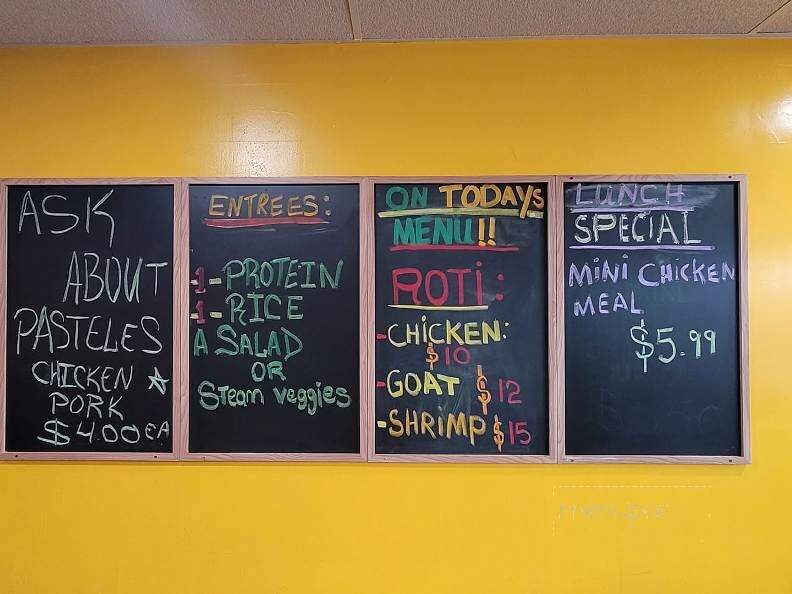 ASK
ABOUT
PASTELES
CHICKEN
PORK
$4.00 EA
ENTREES:
1-PROTEIN
1-RICE
A SALAD
OR
STEAM VEGGIES
ON TODAYS
MENU!!
ROTI:
-CHICKEN:
$10
-GOAT $12
-SHRIMP $15
LUNCH
SPECIAL
MINI CHICKEN
MEAL
$5.99